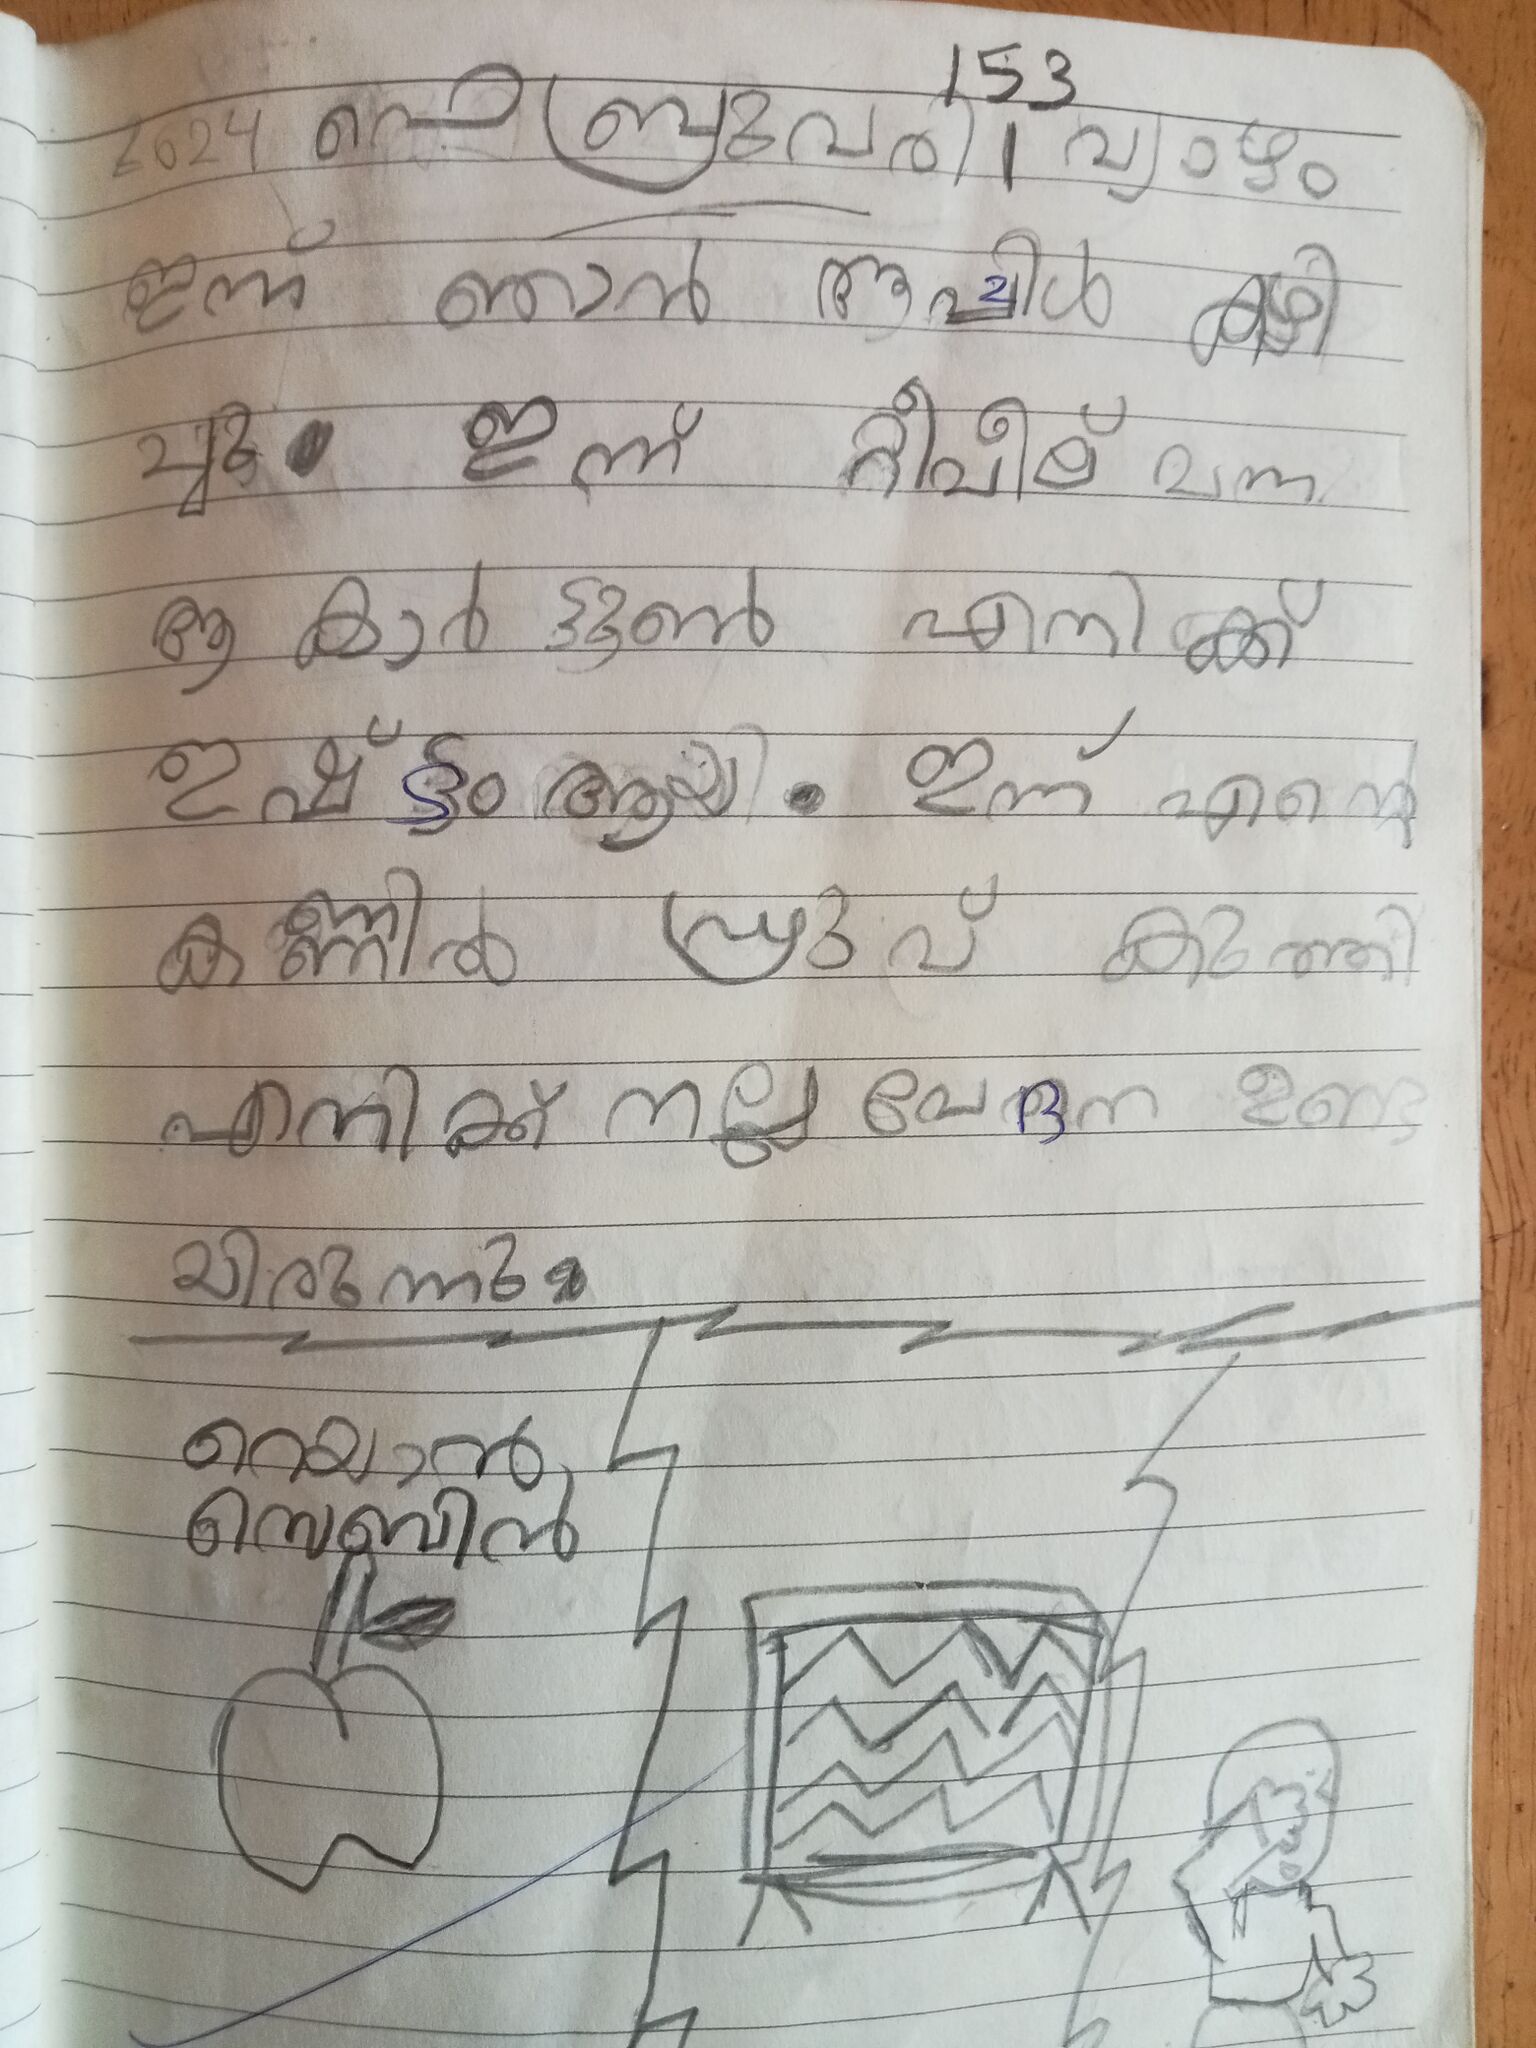 153
2024 ഫെബ്രുവരി 1 വ്യാഴം
ഇന്ന് ഞാൻ ആപ്പിൾ കഴി
ച്ചു. ഇന്ന് ടീവീല് വന്ന
ആ കാർ ട്ടൂൺ എനിക്ക്
ഇഷ്ട്ടം ആയി. ഇന്ന് എന്റെ
കണ്ണിൽ പ്രുവ് കുത്തി
എനിക്ക് നല്ല വേദന ഉണ്ടാ
യിരുന്നു.
റെയാൻ
സെബിൻ